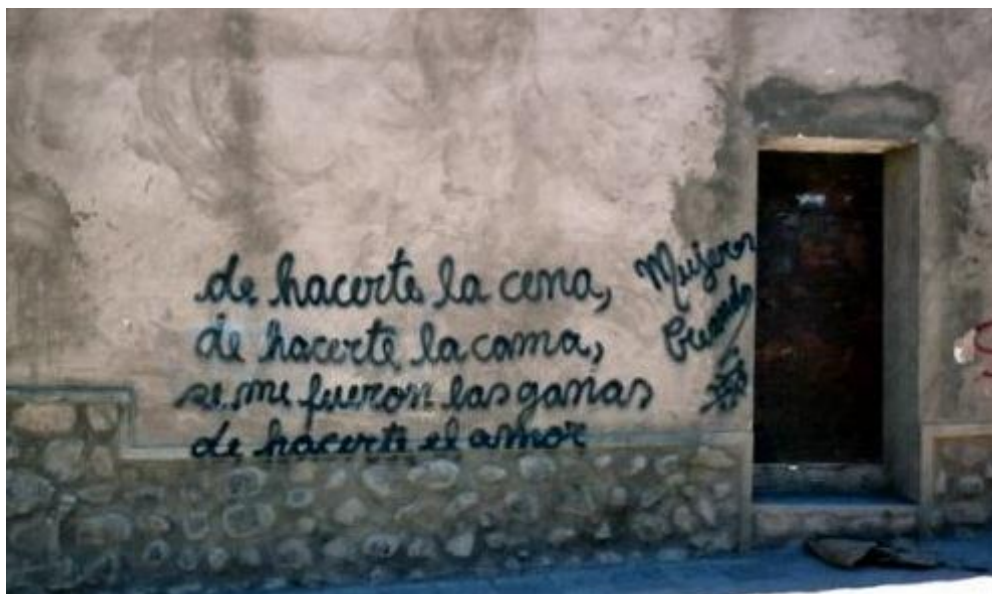 de hacerte la cena,
de hacerte la cama,
se me fueron las ganas
de hacerte el amor
Mujeres
Creando